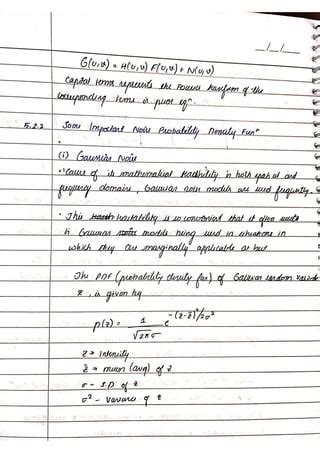 _/_/_
G(u,v) = H(u,v) F(u,v) + N(u,v)
Capital terms represents the Fourier transform of the
corresponding terms in prior eqn.
5.2.2 Some Important Noise Probability Density Funn
(i) Gaussian Noise
'Cause of its mathematical tractability in both spatial and
frequency domains, Gaussian noise models are used frequently.
• This tractability is so convenient that it often results
in Gaussian models being used in situations in
which they are marginally applicable at best
The PDF (probability density fun) of Gaussian random variable
z, is given by
p(z) = 1/√2πσ e^-(z-z̄)²/2σ²
z → Intensity
z̄ → mean (avg) of z
σ - S.D of z
σ² - Variance of z